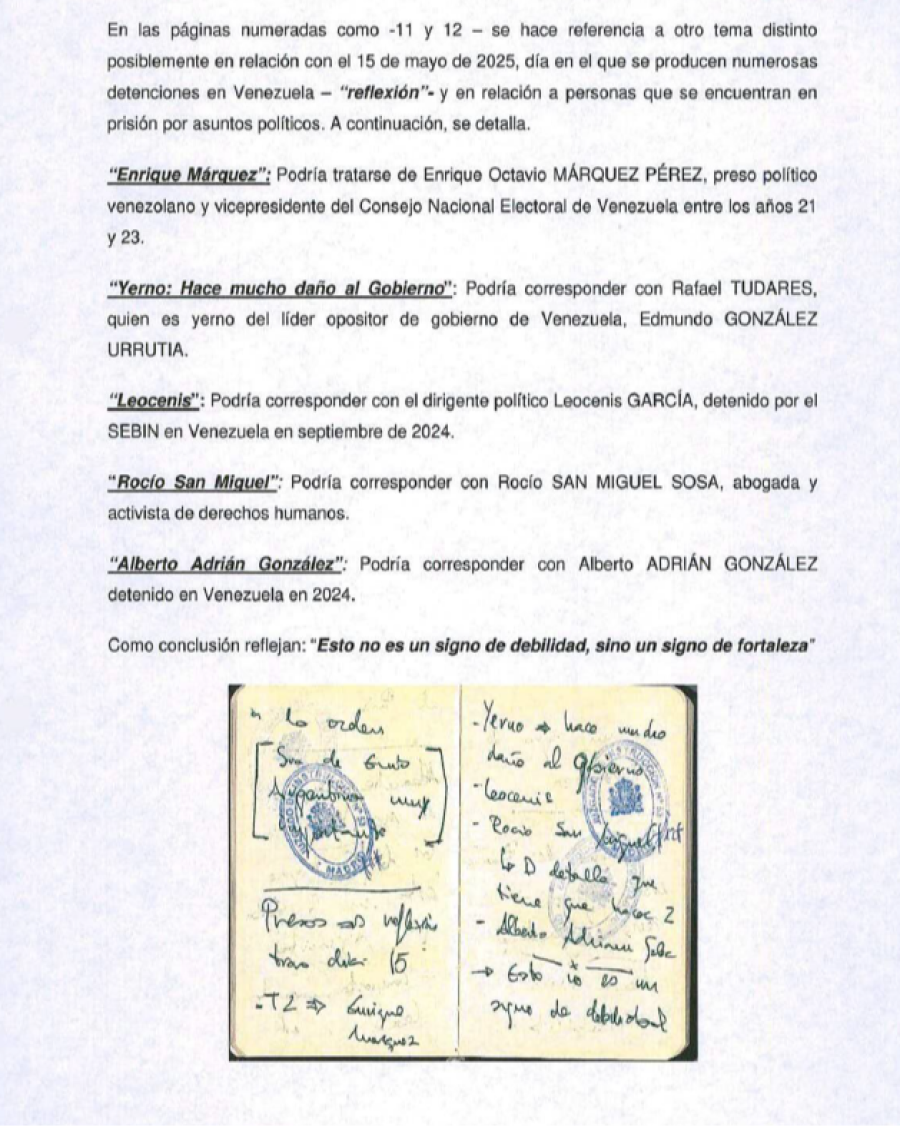 En las páginas numeradas como -11 y 12 – se hace referencia a otro tema distinto
posiblemente en relación con el 15 de mayo de 2025, día en el que se producen numerosas
detenciones en Venezuela – “reflexión”- y en relación a personas que se encuentran en
prisión por asuntos políticos. A continuación, se detalla.
“Enrique Márquez”: Podría tratarse de Enrique Octavio MÁRQUEZ PÉREZ, preso político
venezolano y vicepresidente del Consejo Nacional Electoral de Venezuela entre los años 21
y 23.
“Yerno: Hace mucho daño al Gobierno”: Podría corresponder con Rafael TUDARES,
quien es yerno del líder opositor de gobierno de Venezuela, Edmundo GONZÁLEZ
URRUTIA.
“Leocenis”: Podría corresponder con el dirigente político Leocenis GARCÍA, detenido por el
SEBIN en Venezuela en septiembre de 2024.
“Rocío San Miguel”: Podría corresponder con Rocío SAN MIGUEL SOSA, abogada y
activista de derechos humanos.
“Alberto Adrián González”: Podría corresponder con Alberto ADRIÁN GONZÁLEZ
detenido en Venezuela en 2024.
Como conclusión reflejan: “Esto no es un signo de debilidad, sino un signo de fortaleza”
La orden
de
muy
Presos ⇒ reflexión
15
⇒ Enrique
Marquez
-Yerno ⇒ hace mucho
daño al Gobierno
-Leocenis
- Rocío San Miguel
↳ detalle que
tiene que hacer
- Alberto Adrian
→ Esto no es un
signo de debilidad